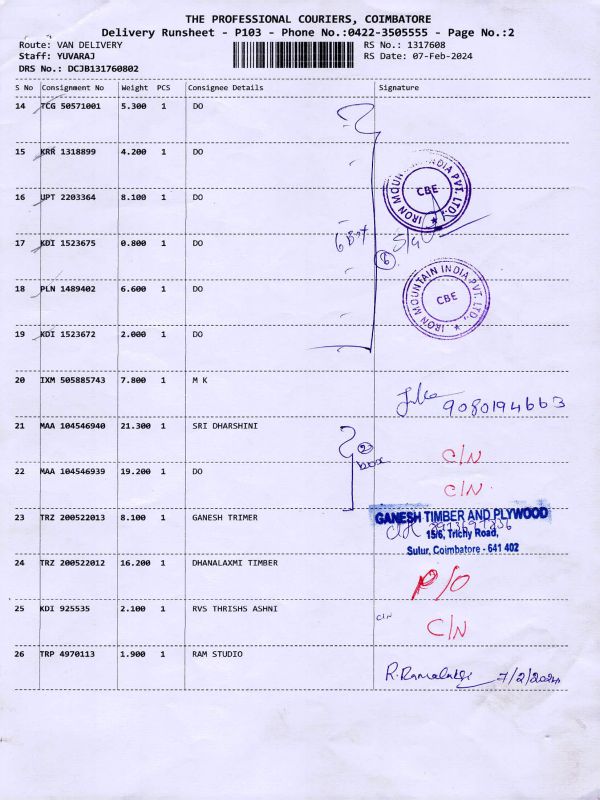 THE PROFESSIONAL COURIERS, COIMBATORE
Delivery Runsheet - P103 - Phone No.:0422-3505555 - Page No.:2
Route: VAN DELIVERY
RS No.: 1317608
Staff: YUVARAJ
RS Date: 07-Feb-2024
DRS No.: DCJB131760802
S No Consignment No Weight PCS Consignee Details Signature
14 TCG 50571001 5.300 1 DO
15 KRR 1318899 4.200 1 DO
IRON MOUNTAIN INDIA PVT. LTD. CBE
16 UPT 2203364 8.100 1 DO
17 KDI 1523675 0.800 1 DO
6 Box
6
18 PLN 1489402 6.600 1 DO
IRON MOUNTAIN INDIA PVT. LTD. CBE
19 KDI 1523672 2.000 1 DO
20 IXM 505885743 7.800 1 M K
9080194663
21 MAA 104546940 21.300 1 SRI DHARSHINI
2
box
C/N
22 MAA 104546939 19.200 1 DO
C/N
23 TRZ 200522013 8.100 1 GANESH TRIMER
GANESH TIMBER AND PLYWOOD
15/6, Trichy Road,
Sulur, Coimbatore - 641 402
24 TRZ 200522012 16.200 1 DHANALAXMI TIMBER
P/O
25 KDI 925535 2.100 1 RVS THRISHS ASHNI
C/N
C/N
26 TRP 4970113 1.900 1 RAM STUDIO
7/2/2024